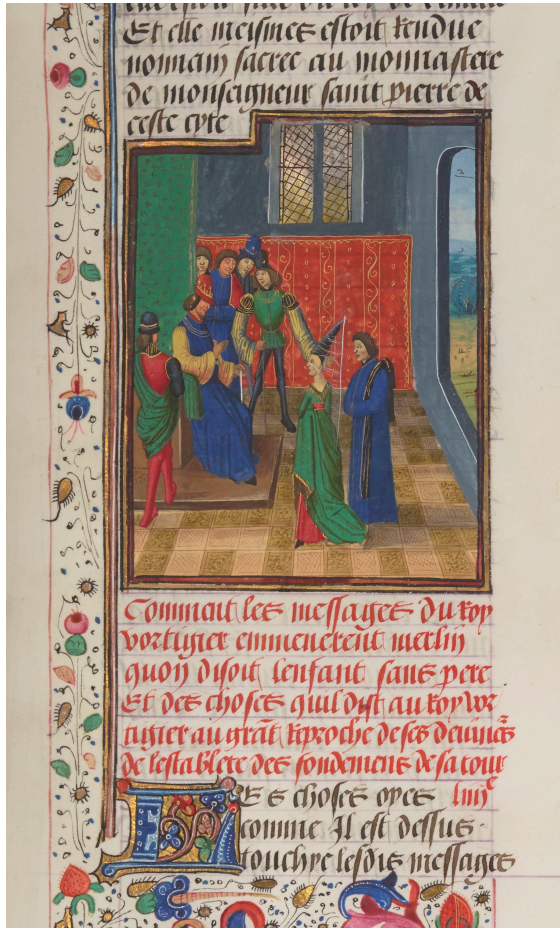 Et elle meismes estoit rendue
nonnain sacree au monnastere
de monseigneur saint pierre de
ceste cyte
Comment les messages du roy
vortigier emmenerent merlin
quon disoit lenfant sans pere
Et des choses quil dist au roy vor
tigier au grãt reproche de ses deuineˢ
de lestablete des fondemens de sa tour
Es choses oyes liiiiᵉ
comme Il est dessus
touchye lesdis messages